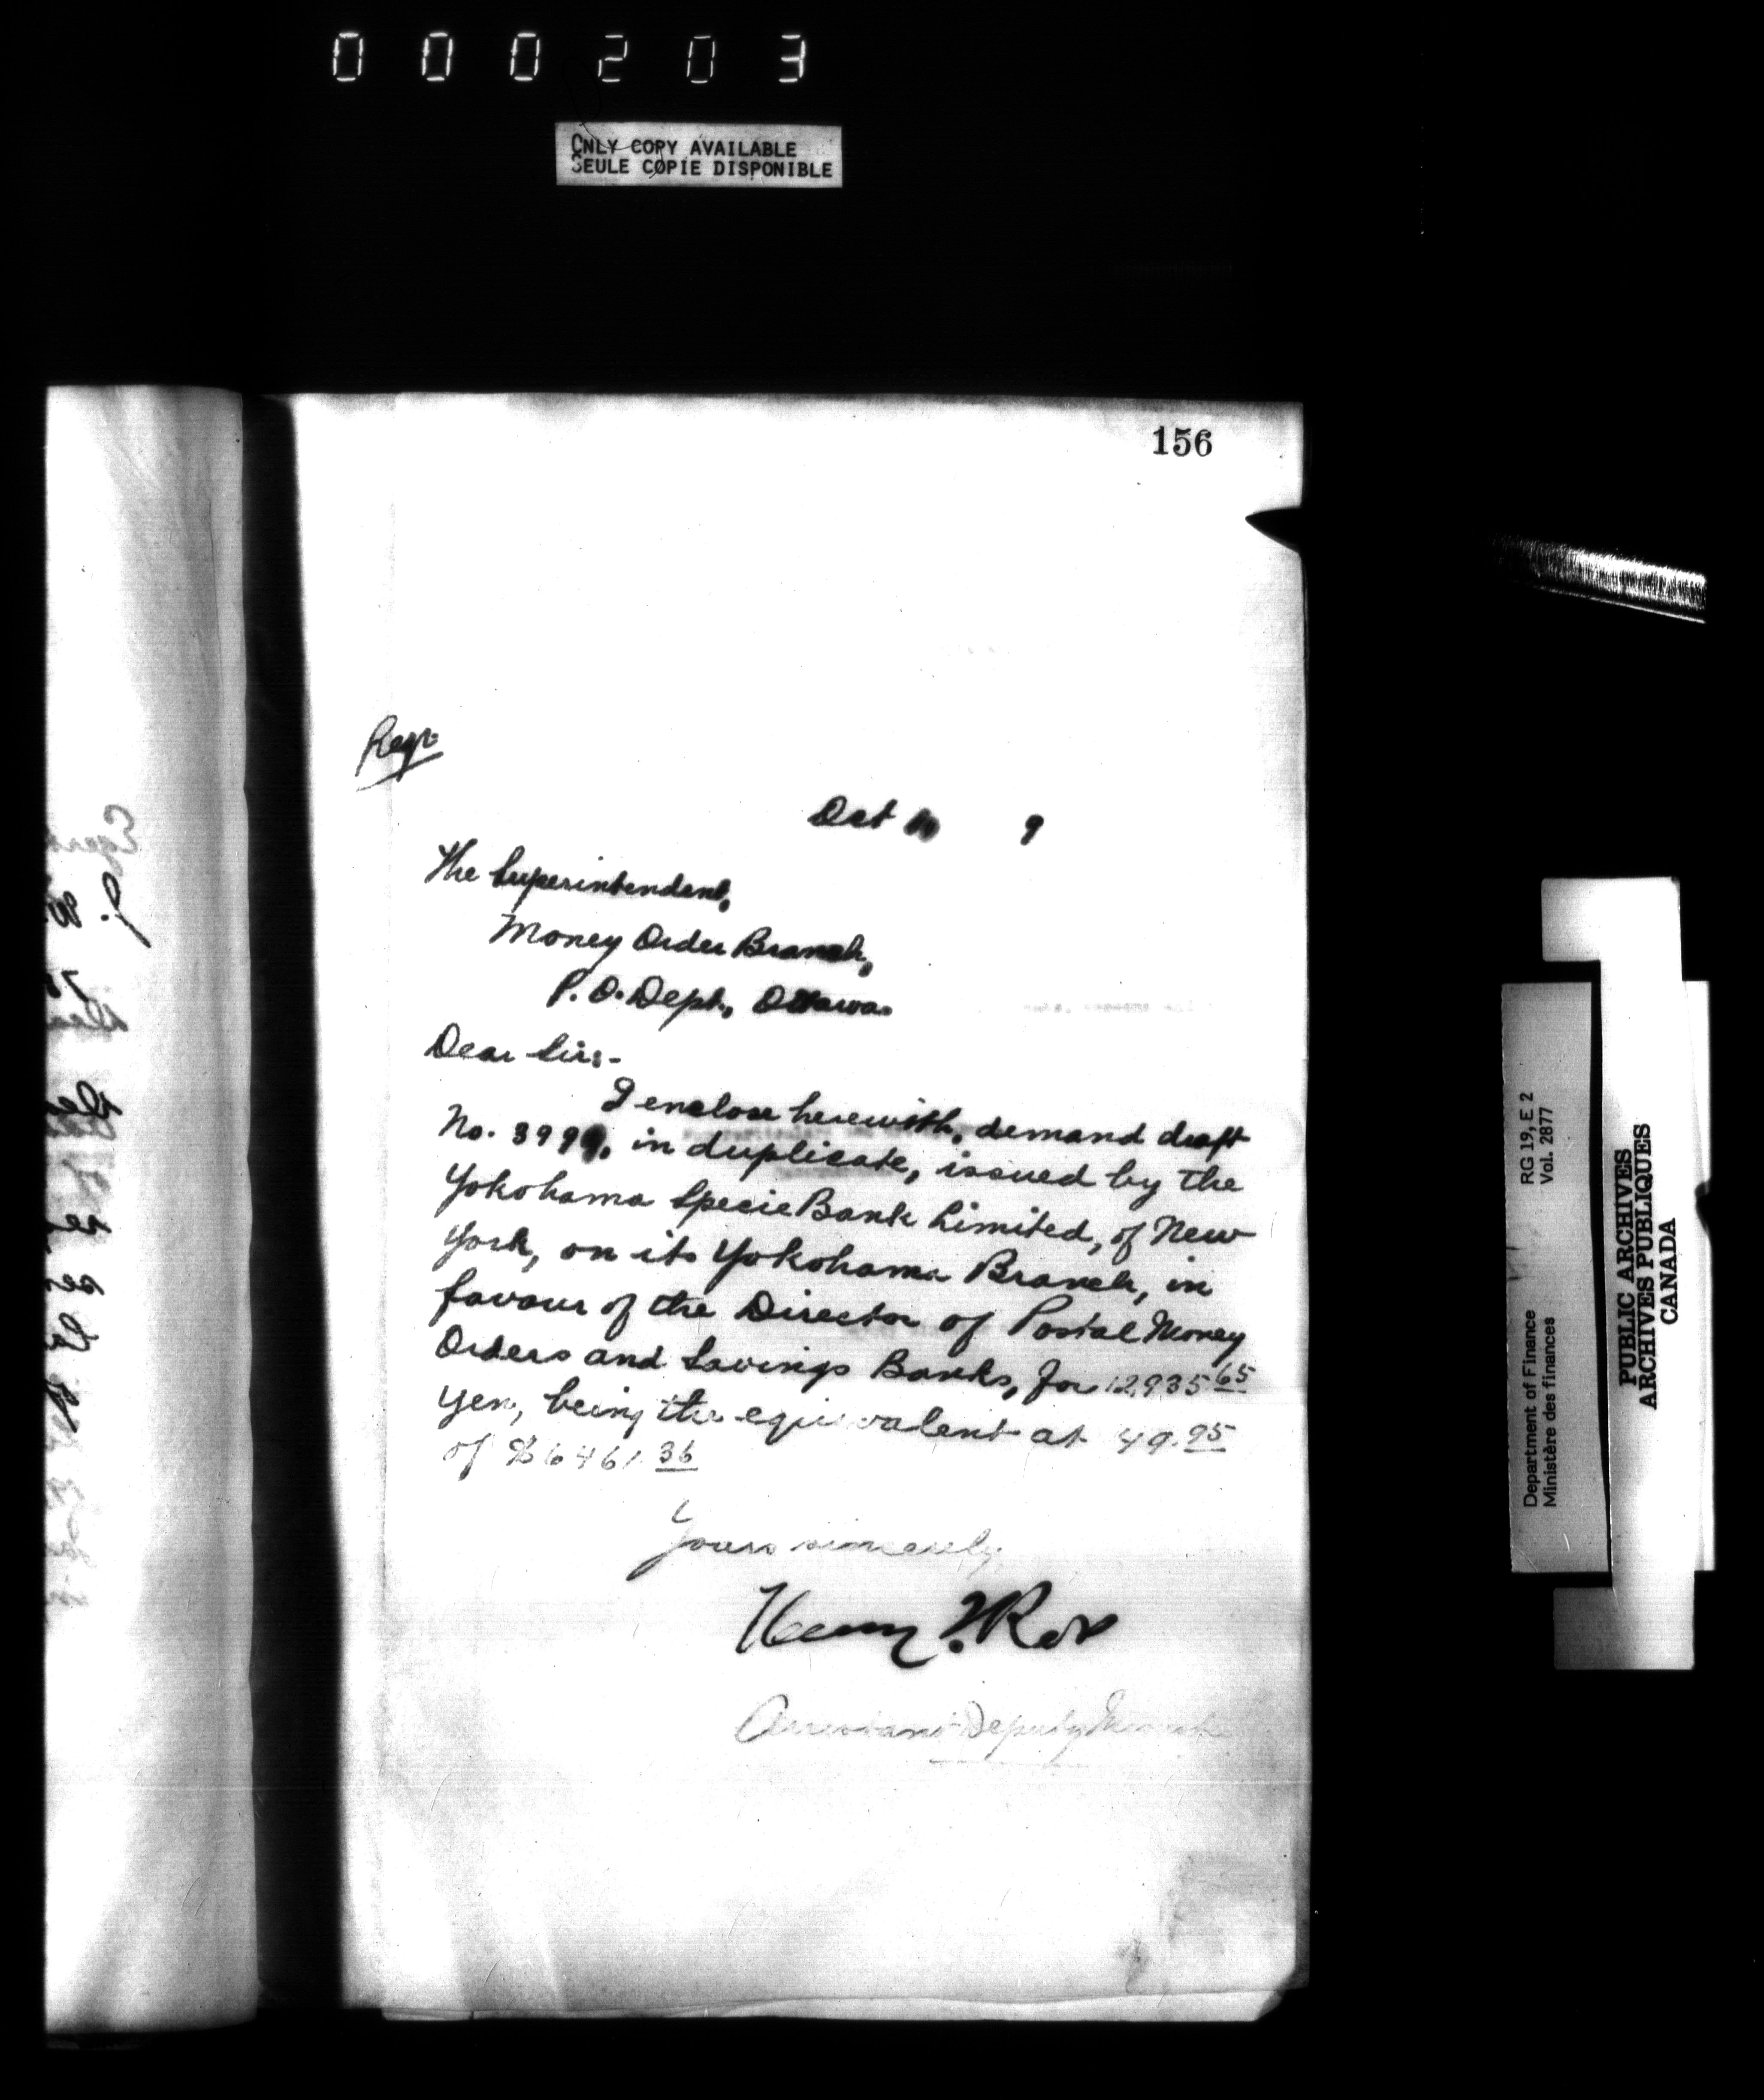 000203
ONLY COPY AVAILABLE
SEULE COPIE DISPONIBLE
156
Regr
Oct 9
The Superintendent,
Money Order Branch,
P. O. Dept., Ottawa.
Dear Sir:-
I enclose herewith, demand draft
No. 3999, in duplicate, issued by the
Yokohama Specie Bank Limited, of New
York, on its Yokohama Branch, in
favour of the Director of Postal Money
Orders and Savings Banks, for 12,935 65
Yen, being the equivalent at 49.95
of $6461.36
Yours sincerely,
Henry T. Ross
Assistant Deputy Minister
Department of Finance RG 19, E 2
Ministère des finances Vol. 2877
PUBLIC ARCHIVES
ARCHIVES PUBLIQUES
CANADA